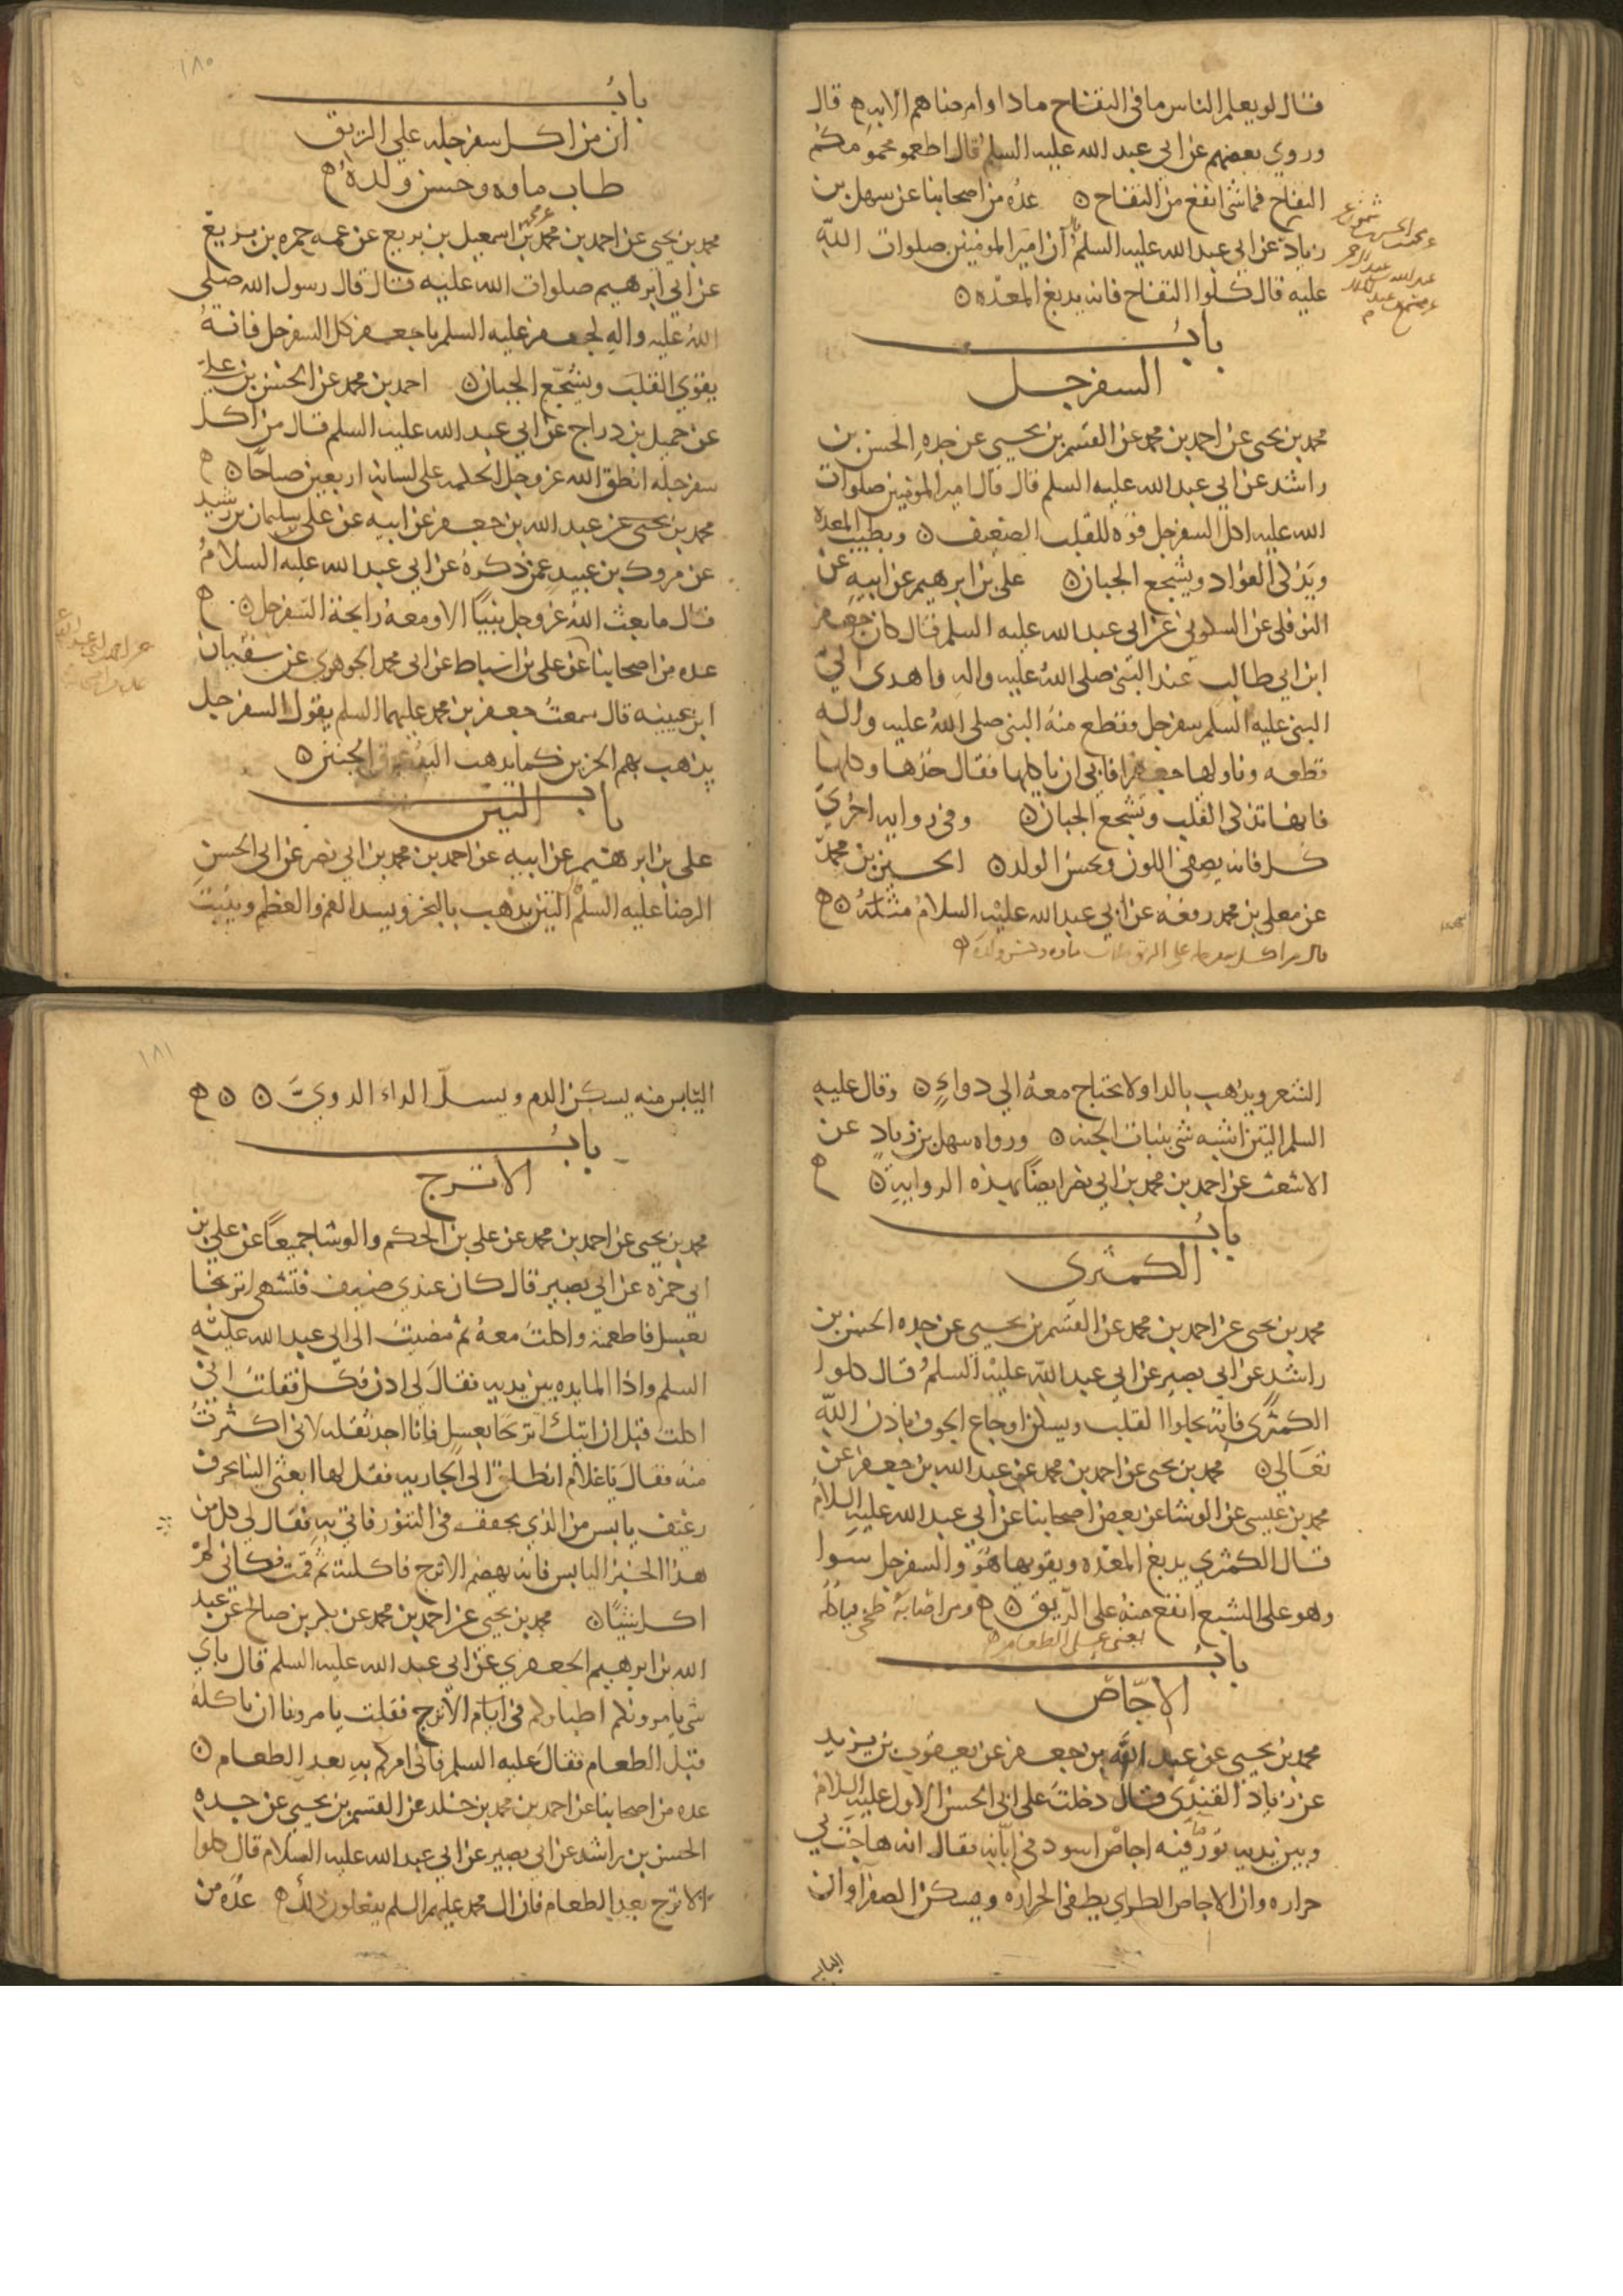 قال لو يعلم الناس ما في التفاح ما داووا مرضاهم الا به ه قال
وروي بعضهم عن ابي عبد الله عليه السلم قال اطعموا محموميكم
التفاح فما شي انفع من التفاح ه عده من اصحابنا عن سهل بن
زياد عن ابي عبد الله عليه السلم ان امير المومنين صلوات الله
عليه قال كلوا التفاح فانه يدبغ المعده ه
باب
السفرجل
محمد بن يحيى عن احمد بن محمد عن القسم بن يحيى عن جده الحسن بن
راشد عن ابي عبد الله عليه السلم قال قال امير المومنين صلوات
الله عليه اكل السفرجل قوه للقلب الضعيف ه ويطيب المعدة
ويذكى الفواد ويشجع الجبان ه علي بن ابرهيم عن ابيه عن
النوفلي عن السكوني عن ابي عبد الله عليه السلم قال كان جعفر
ابن ابي طالب عند النبي صلى الله عليه واله فاهدى الى
النبي عليه السلم سفرجل فقطع منه النبي صلى الله عليه واله
قطعه وناولها جعفرا فابي ان ياكلها فقال خذها وكلها
فانها تذكى القلب وتشجع الجبان ه وفي روايه اخرى
كل فانه يصفى اللون ويحسن الولد ه الحسين بن محمد
عن معلى بن محمد رفعه عن ابي عبد الله عليه السلام مثله ه
قال من اكل سفرجله على الريق طاب ماوه وحسن ولده
١٨٠
باب
ان من اكل سفرجله علي الريق
طاب ماوه وحسن ولده
محمد بن يحيى عن احمد بن محمد عن محمد بن اسمعيل بن بزيع عن عمه حمزه بن بزيع
عن ابي ابرهيم صلوات الله عليه قال قال رسول الله صلى
الله عليه واله لجعفر عليه السلم يا جعفر كل السفرجل فانه
يقوي القلب ويشجع الجبان ه احمد بن محمد عن الحسن بن علي
عن جميل بن دراج عن ابي عبد الله عليه السلم قال من اكل
سفرجله انطق الله عز وجل الحكمه على لسانه اربعين صباحا ه
محمد بن يحيى عن عبد الله بن جعفر عن ابيه عن علي بن سليمان بن رشيد
عن مروك بن عبيد عمن ذكره عن ابي عبد الله عليه السلام
قال ما بعث الله عز وجل نبيا الا ومعه رايحة السفرجل ه
عده من اصحابنا عن علي بن اسباط عن ابي محمد الجوهري عن سفيان
ابن عيينه قال سمعت جعفر بن محمد عليهما السلم يقول السفرجل
يذهب بهم الحزين كما يذهب اليد بعرق الجبين ه
باب التين
علي بن ابرهيم عن ابيه عن احمد بن محمد بن ابي نصر عن ابي الحسن
الرضا عليه السلم التين يذهب بالبخر ويسد الفم والعظم وينبت
الشعر ويذهب بالدا ولا يحتاج معه الي دواء ه وقال عليه
السلم التين اشبه شي بنبات الجنه ه ورواه سهل بن زياد عن
الاشعث عن احمد بن محمد بن ابي نصر ايضا بهذه الروايه ه
باب
الكمثرى
محمد بن يحيى عن احمد بن محمد عن القسم بن يحيى عن جده الحسن بن
راشد عن ابي بصير عن ابي عبد الله عليه السلم قال كلوا
الكمثرى فانه يجلوا القلب ويسكن اوجاع الجوف باذن الله
تعالى ه محمد بن يحيى عن احمد بن محمد عن عبد الله بن جعفر عن
محمد بن عيسى عن الوشا عن بعض اصحابنا عن ابي عبد الله عليه السلام
قال الكمثري يدبغ المعده ويقويها هو والسفرجل سوا
وهو على الشبع انفع منه على الريق ه ومن اصابه طخى فياكله
يعني على الطعام
باب
الاجاص
محمد بن يحيى عن عبد الله بن جعفر عن يعقوب بن يزيد
عن زياد القندى قال دخلت على ابي الحسن الاول عليه السلام
وبين يديه تور فيه اجاص اسود في ابانه فقال انه هاجت بي
حراره وان الاجاص الطري يطفى الحراره ويسكن الصفرا وان
اليابس
١٨١
اليابس منه يسكن الدم ويسل الداء الدوي ه ه
باب
الاترج
محمد بن يحيى عن احمد بن محمد عن علي بن الحكم والوشا جميعا عن علي بن
ابي حمزه عن ابي بصير قال كان عندي ضيف فتشهى اترنجا
بعسل فاطعمته واكلت معه ثم مضيت الى ابي عبد الله عليه
السلم واذا المايده بين يديه فقال لي ادن فكل فقلت اني
اكلت قبل ان اتيك اترنجا بعسل فانا اجد ثقله لاني اكثرت
منه فقال يا غلام انطلق الى الجاريه فقل لها ابعثى الينا بحرف
رغيف يابس من الذي يجفف في التنور فاتي به فقال لي كل من
هذا الخبز اليابس فانه يهضم الاترج فاكلته ثم قمت فكاني لم
اكل شيئا ه محمد بن يحيى عن احمد بن محمد عن بكر بن صالح عن عبد
الله بن ابرهيم الجعفري عن ابي عبد الله عليه السلم قال باي
شي يامرونكم اطباوكم في ايام الاترج فقلت يامرونا ان ناكله
قبل الطعام فقال عليه السلم فاني امركم به بعد الطعام ه
عده من اصحابنا عن احمد بن محمد بن خلد عن القسم بن يحيى عن جده
الحسن بن راشد عن ابي بصير عن ابي عبد الله عليه السلام قال كلوا
الاترج بعد الطعام فان ال محمد عليهم السلم يفعلون ذلك ه عده من